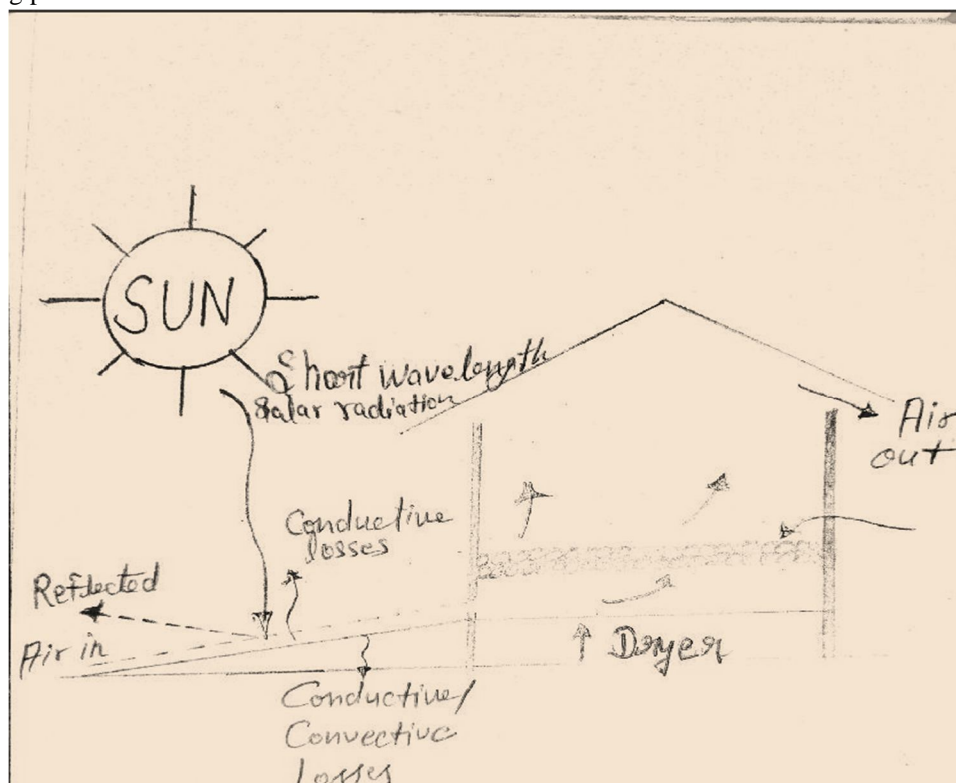 SUN
Short wavelength
Solar radiation
Air
out
Conductive
losses
Reflected
Air in
Dryer
Conductive/
Convective
Losses